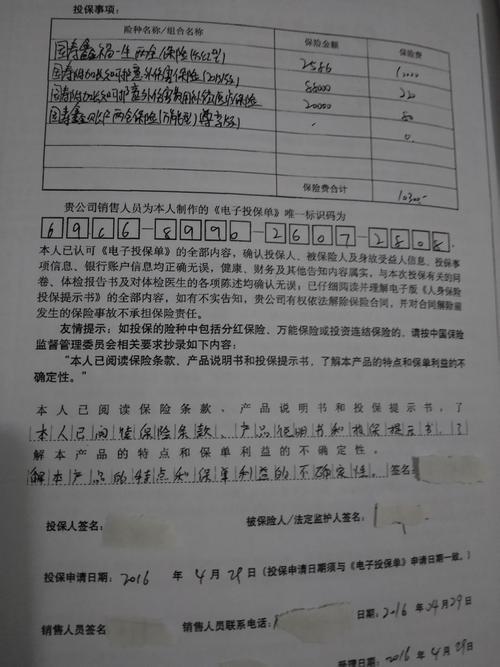 投保事项：
险种名称/组合名称 保险金额 保险费
国寿鑫福一生两全保险 2586 10000
88000 220
20000 80
国寿鑫账户两全保险(万能型)(尊享版) 0.
保险费合计 10300-
贵公司销售人员为本人制作的《电子投保单》唯一标识码为
6906-8990-2607-2808.
本人已认可《电子投保单》的全部内容，确认投保人、被保险人及身故受益人信息、投保事
项信息、银行账户信息均正确无误，健康、财务及其他告知内容属实，与本次投保有关的问
卷、体检报告书及对体检医生的各项陈述均确认无误；已仔细阅读并理解电子版《人身保险
投保提示书》的全部内容，如有不实告知，贵公司有权依法解除保险合同，并对合同解除前
发生的保险事故不承担保险责任。
友情提示：如投保的险种中包括分红保险、万能保险或投资连结保险的，请按中国保险
监督管理委员会相关要求抄录如下内容：
“本人已阅读保险条款、产品说明书和投保提示书，了解本产品的特点和保单利益的不
确定性。”
本人已阅读保险条款、产品说明书和投保提示书，了
本人已阅读保险条款、产品说明书和投保提示书，了
解本产品的特点和保单利益的不确定性。
解本产品的特点和保单利益的不确定性。 签名：
投保人签名： 被保险人/法定监护人签名：
投保申请日期：2016 年 4 月 29 日（投保申请日期须与《电子投保单》申请日期一致。）
销售人员签名 销售人员联系电话： 日期：2016年04月29日
受理日期：2016年4月29